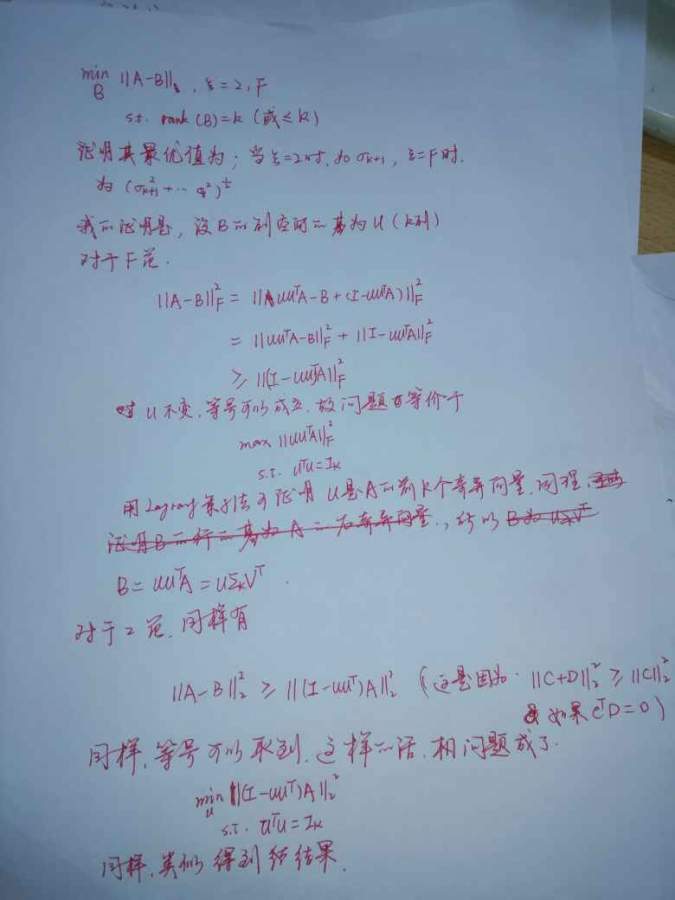 min ||A-B||ξ , ξ=2, F
B
s.t. rank(B)=k (或≤k)
证明其最优值为；当ξ=2时，为σk+1，ξ=F时.
为 (σ²k+1+⋯σ²)^½
我的证明是，设B的列空间的基为U（k列）
对于F范.
||A-B||²F = ||UUᵀA-B+(I-UUᵀA)||²F
= ||UUᵀA-B||²F + ||I-UUᵀA||²F
≥ ||(I-UUᵀ)A||²F
对U不变，等号可以成立，故问题等价于
max ||UUᵀA||²F
s.t. UᵀU=Ik
用Lagrang乘子法可证明U是A的前k个奇异向量，同理，
证明B的行的基为A的右奇异向量，所以 B为UΣVᵀ
B=UUᵀA=UΣkVᵀ.
对于2范，同样有
||A-B||²₂ ≥ ||(I-UUᵀ)A||²₂ (这是因为 ||C+D||²₂ ≥ ||C||²₂
如果CᵀD=0)
同样，等号可以取到，这样的话，相问题成了.
min ||(I-UUᵀ)A||²₂
U
s.t. UᵀU=Ik
同样，类似得到结果.